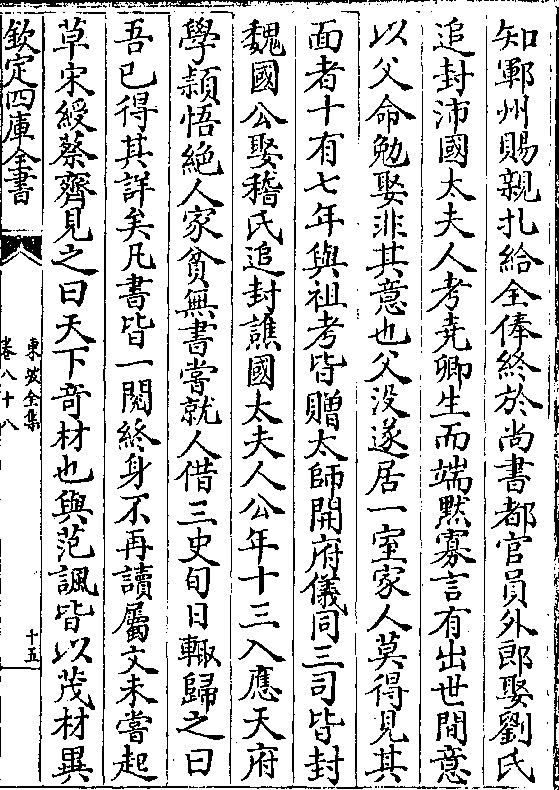 知鄆州賜親札給全俸終於尚書都官員外郎娶劉氏
追封沛國太夫人考堯卿生而端黙寡言有出世間意
以父命勉娶非其意也父没遂居一室家人莫得見其
面者十有七年與祖考皆贈太師開府儀同三司皆封
魏國公娶嵇氏追封譙國太夫人公年十三入應天府
學頴悟絶人家貧無書嘗就人借三史旬日輙歸之曰
吾已得其詳矣凡書皆一閱終身不再讀屬文未嘗起
草宋綬蔡齊見之曰天下奇材也與范諷皆以茂材異
欽定四庫全書
東坡全集
卷八十八
十五